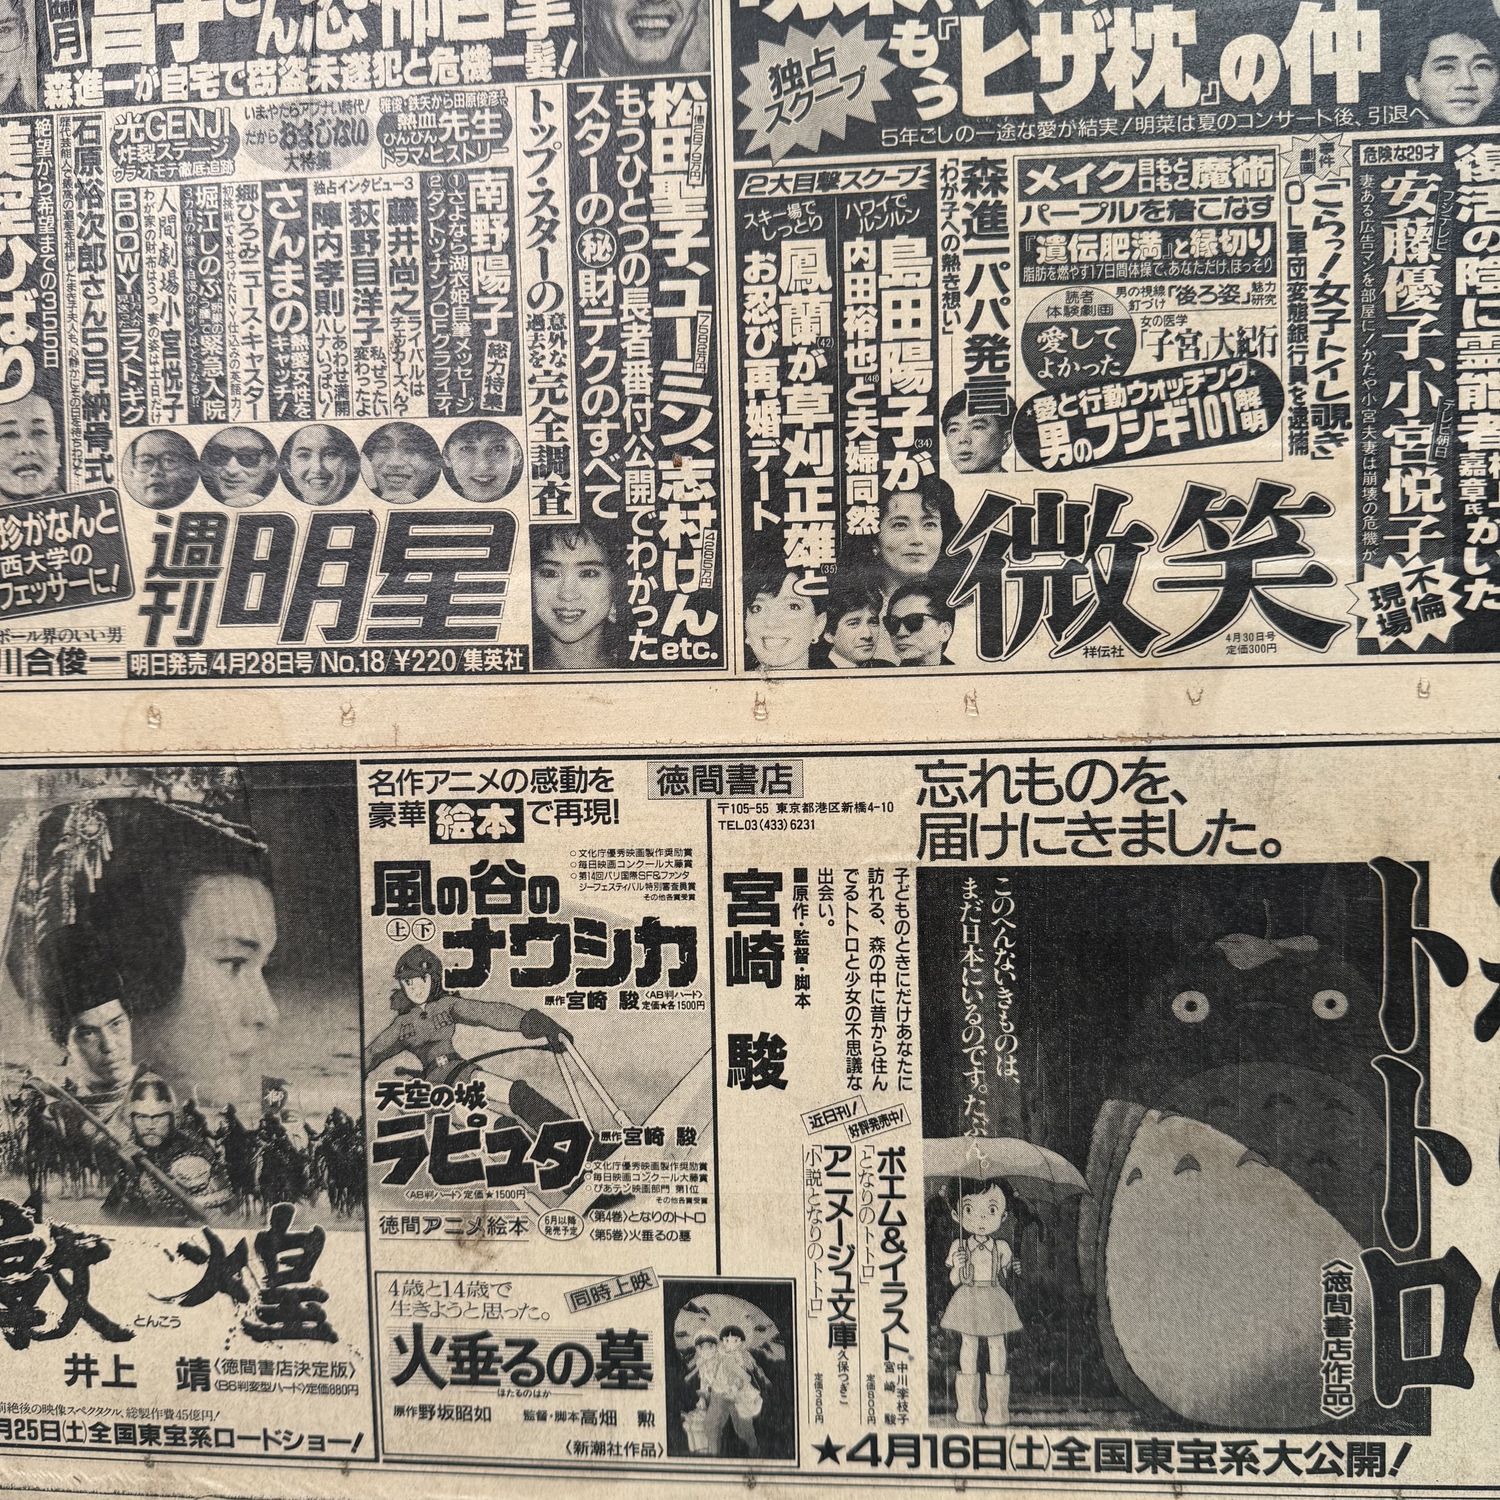 森進一が自宅で窃盗未遂犯と危機一髪!
光GENJI
炸裂ステージ
ウラ・オモテ徹底追跡
いまやたらアブナい時代!
だから おまじない
大特集
雅俊・鉄矢から田原俊彦まで
熱血 先生
びんびん
ドラマ・ヒストリー
松田聖子、ユーミン、志村けん etc.
もうひとつの長者番付公開でわかった
スターの㊙財テクのすべて
トップ・スターの意外な過去を完全調査
総力特集
南野陽子
①さよなら湖衣姫自筆メッセージ
②タントツナンノCFグラフィティ
独占インタビュー3
藤井尚之
ライバルはチェッカーズん?
荻野目洋子
私、ぜったい変わったよ
陣内孝則
しあわせ満開 ハナいっぱい!
さんまの熱愛女性をキャッチ!
郷ひろみニュース・キャスター
堀江しのぶ 緊急入院
人間劇場 小宮悦子
BOØWY ラスト・ギグ
石原裕次郎さん5月納骨式
絶望から希望までの355日
美空ひばり
珍がなんと
西大学の
フェッサーに!
ボール界のいい男
川合俊一
週刊明星
明日発売/4月28日号/No.18/¥220/集英社
独占
スクープ
もう『ヒザ枕』の仲
5年ごしの一途な愛が結実!明菜は夏のコンサート後、引退へ
復活の陰に霊能者
嘉章氏
危険な29才
フジテレビ
安藤優子、
テレビ朝日
小宮悦子
不倫
現場
妻ある広告マンを部屋に!かたや小宮夫妻は崩壊の危機か
事件
劇画
「こらっ!女子トイレ覗き」
OL軍団変態銀行員を逮捕
メイク 目もと 口もと 魔術
パープルを着こなす
『遺伝肥満』と縁切り
脂肪を燃やす17日間体操で、あなただけ、ほっそり
読者
体験劇画
愛して
よかった
男の視線
釘づけ
「後ろ姿」魅力研究
女の医学
「子宮」大紀行
愛と行動ウォッチング
男のフシギ101解明
森進一パパ発言
「わが子への熱き想い」
2大目撃スクープ
ハワイで
ルンルン
島田陽子(34)が
内田裕也(48)と夫婦同然
スキー場で
しっとり
鳳蘭(42)が草刈正雄(35)と
お忍び再婚デート
微笑
祥伝社
4月30日号
定価300円
敦煌
とんこう
井上 靖
〈徳間書店決定版〉
〈B6判変型ハード〉定価880円
前絶後の映像スペクタクル、総製作費45億円!
月25日(土)全国東宝系ロードショー!
名作アニメの感動を
豪華絵本で再現!
○文化庁優秀映画製作奨励賞
○毎日映画コンクール大藤賞
○第14回パリ国際SF&ファンタ
ジーフェスティバル特別審査員賞
その他各賞受賞
風の谷の
上 下
ナウシカ
原作 宮崎 駿
〈AB判ハード〉
定価★各1500円
天空の城
ラピュタ
原作 宮崎 駿
〈AB判ハード〉定価★1500円
○文化庁優秀映画製作奨励賞
○毎日映画コンクール大藤賞
○ぴあテン映画部門 第1位
その他各賞受賞
徳間アニメ絵本
6月以降
発売予定
〈第4巻〉となりのトトロ
〈第5巻〉火垂るの墓
4歳と14歳で
生きようと思った。
同時上映
火垂るの墓
ほたるのはか
原作 野坂昭如 監督・脚本 高畑 勲
〈新潮社作品〉
徳間書店
〒105-55 東京都港区新橋4-10
TEL03(433)6231
忘れものを、
届けにきました。
トトロ
〈徳間書店作品〉
このへんないきものは、
まだ日本にいるのです。たぶん。
子どものときにだけあなたに
訪れる、森の中に昔から住ん
でるトトロと少女の不思議な
出会い。
■原作・監督・脚本
宮崎 駿
近日刊!
好評発売中!
ポエム&イラスト
「となりのトトロ」
中川李枝子
宮崎 駿
定価800円
アニメージュ文庫
「小説となりのトトロ」
久保つぎこ
定価380円
★4月16日(土)全国東宝系大公開!